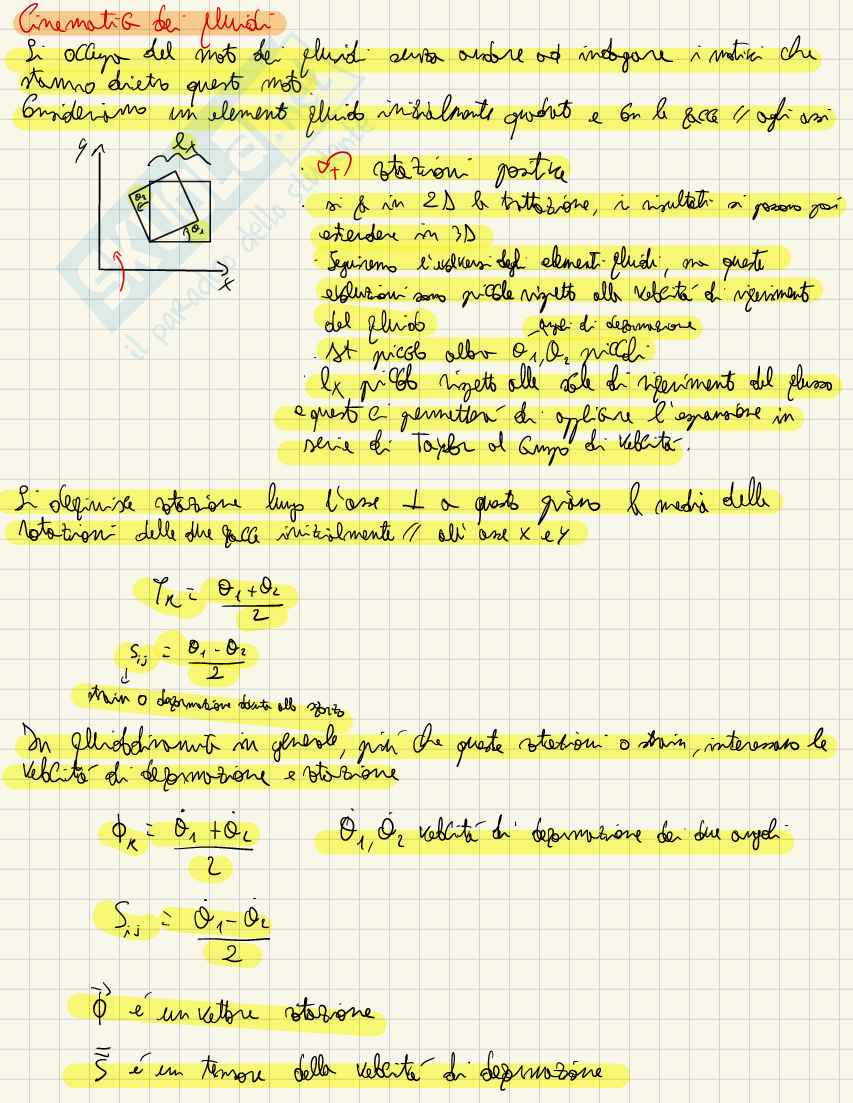 Cinematica dei fluidi
Si occupa del moto dei fluidi senza andare ad indagare i motivi che
stanno dietro questi moti
Consideriamo un elemento fluido inizialmente quadrato e con le facce // agli assi
y lx
θ2 θ1
x
· + rotazioni positive
· si fa in 2D la trattazione, i risultati si possono poi
estendere in 3D
· Seguiremo l'evolversi degli elementi fluidi, ma queste
evoluzioni sono piccole rispetto alla velocità di riferimento
del fluido
angoli di deformazione
· δt piccolo allora θ1, θ2 piccoli
· lx piccolo rispetto alle scale di riferimento del flusso
e questo ci permetterà di applicare l'espansione in
serie di Taylor al campo di velocità.
Si definisce rotazione lungo l'asse ⊥ a questo piano la media delle
rotazioni delle due facce inizialmente // all'asse x e y
rk = θ1+θ2 / 2
sij = θ1-θ2 / 2
strain o deformazione dovuta allo sforzo
In fluidodinamica in generale, più che queste rotazioni o strain, interessano le
velocità di deformazione e rotazione
ϕk = θ̇1 + θ̇2 / 2 θ̇1, θ̇2 velocità di deformazione dei due angoli
Sij = θ̇1 - θ̇2 / 2
ϕ⃗ è un vettore rotazione
S̿ è un tensore della velocità di deformazione